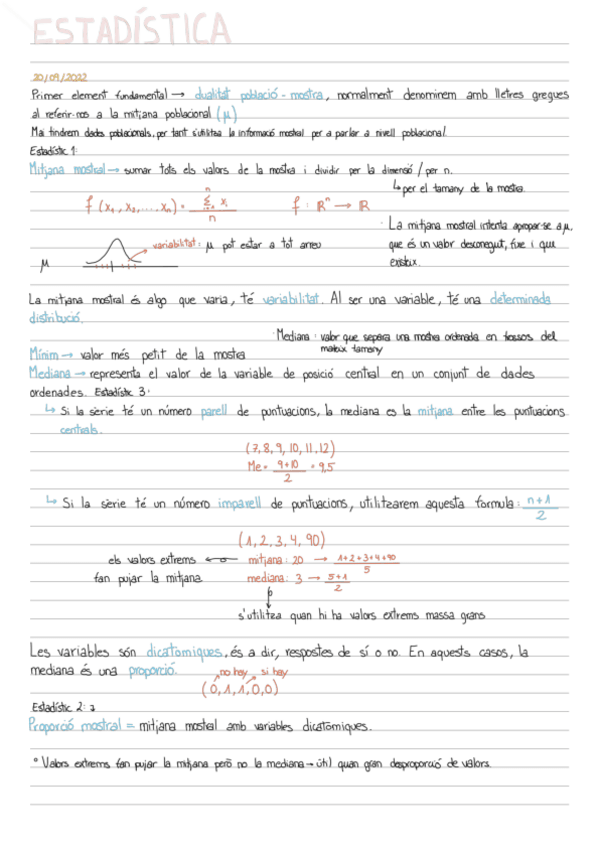 ESTADÍSTICA
20/09/2022
Primer element fundamental → dualitat població - mostra, normalment denominem amb lletres gregues
al referir-nos a la mitjana poblacional (μ)
Mai tindrem dades poblacionals, per tant s'utilitza la informació mostral per a parlar a nivell poblacional.
Estadístic 1:
Mitjana mostral → sumar tots els valors de la mostra i dividir per la dimensió / per n.
↳ per el tamany de la mostra.
f (x₁, x₂, ... xₙ) = n Σ xᵢ / n f : ℝⁿ → ℝ
· La mitjana mostral intenta apropar-se a μ,
variabilitat: μ pot estar a tot arreu
que és un valor desconegut, fixe i que
μ
existeix.
La mitjana mostral és algo que varia, té variabilitat. Al ser una variable, té una determinada
distribució.
· Mediana: valor que separa una mostra ordenada en trossos del
mateix tamany
Mínim → valor més petit de la mostra
Mediana → representa el valor de la variable de posició central en un conjunt de dades
ordenades. Estadístic 3:
↳ Si la sèrie té un número parell de puntuacions, la mediana es la mitjana entre les puntuacions
centrals.
(7, 8, 9, 10, 11, 12)
Me = 9+10 / 2 = 9,5
↳ Si la sèrie té un número imparell de puntuacions, utilitzarem aquesta formula: n+1 / 2
(1, 2, 3, 4, 90)
els valors extrems ← mitjana: 20 → 1+2+3+4+90 / 5
fan pujar la mitjana mediana: 3 → 5+1 / 2
s'utilitza quan hi ha valors extrems massa grans
Les variables són dicatòmiques, és a dir, respostes de sí o no. En aquests casos, la
mediana és una proporció.
no hay si hay
(0, 1, 1, 0, 0)
Estadístic 2:
Proporció mostral = mitjana mostral amb variables dicatòmiques.
° Valors extrems fan pujar la mitjana però no la mediana → útil quan gran desproporció de valors.